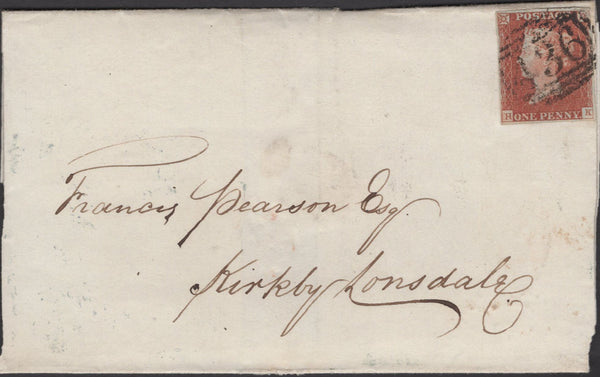 POSTAGE
36
H K
ONE PENNY.
Francis Pearson Esq.
Kirkby Lonsdale